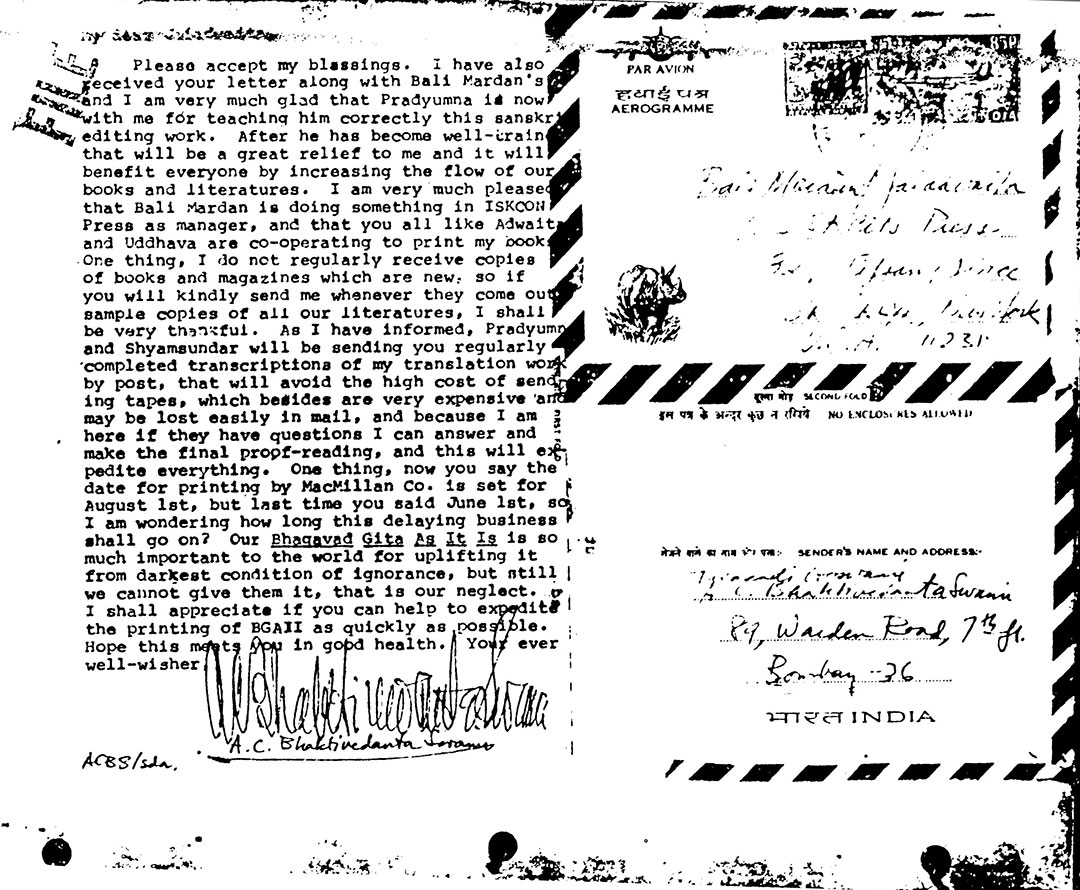 My dear Jaiadvaita,
Please accept my blessings. I have also
received your letter along with Bali Mardan's
and I am very much glad that Pradyumna is now
with me for teaching him correctly this sanskri
editing work. After he has become well-train
that will be a great relief to me and it will
benefit everyone by increasing the flow of our
books and literatures. I am very much pleased
that Bali Mardan is doing something in ISKCON
Press as manager, and that you all like Adwaita
and Uddhava are co-operating to print my book
One thing, I do not regularly receive copies
of books and magazines which are new, so if
you will kindly send me whenever they come out
sample copies of all our literatures, I shall
be very thankful. As I have informed, Pradyumn
and Shyamsundar will be sending you regularly
completed transcriptions of my translation work
by post, that will avoid the high cost of send
ing tapes, which besides are very expensive and
may be lost easily in mail, and because I am
here if they have questions I can answer and
make the final proof-reading, and this will ex-
pedite everything. One thing, now you say the
date for printing by MacMillan Co. is set for
August 1st, but last time you said June 1st, so
I am wondering how long this delaying business
shall go on? Our Bhagavad Gita As It Is is so
much important to the world for uplifting it
from darkest condition of ignorance, but still
we cannot give them it, that is our neglect.
I shall appreciate if you can help to expedite
the printing of BGAII as quickly as possible.
Hope this meets you in good health. Your ever
well-wisher
A.C. Bhaktivedanta Swami
ACBS/sda.
PAR AVION
हवाई पत्र
AEROGRAMME
Press
11231
दूसरा मोड़ SECOND FOLD
इस पत्र के अन्दर कुछ न रखिये NO ENCLOSURES ALLOWED
FIRST FOLD
भेजने वाले का नाम और पता:- SENDER'S NAME AND ADDRESS:-
A. C. Bhaktivedanta Swami
89, Warden Road, 7th fl.
Bombay-36
भारत INDIA